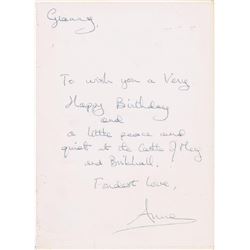 Granny,
To wish you a Very
Happy Birthday
and
a little peace and
quiet at the Castle of Mey
and Birkhall.
Fondest Love,
Anne